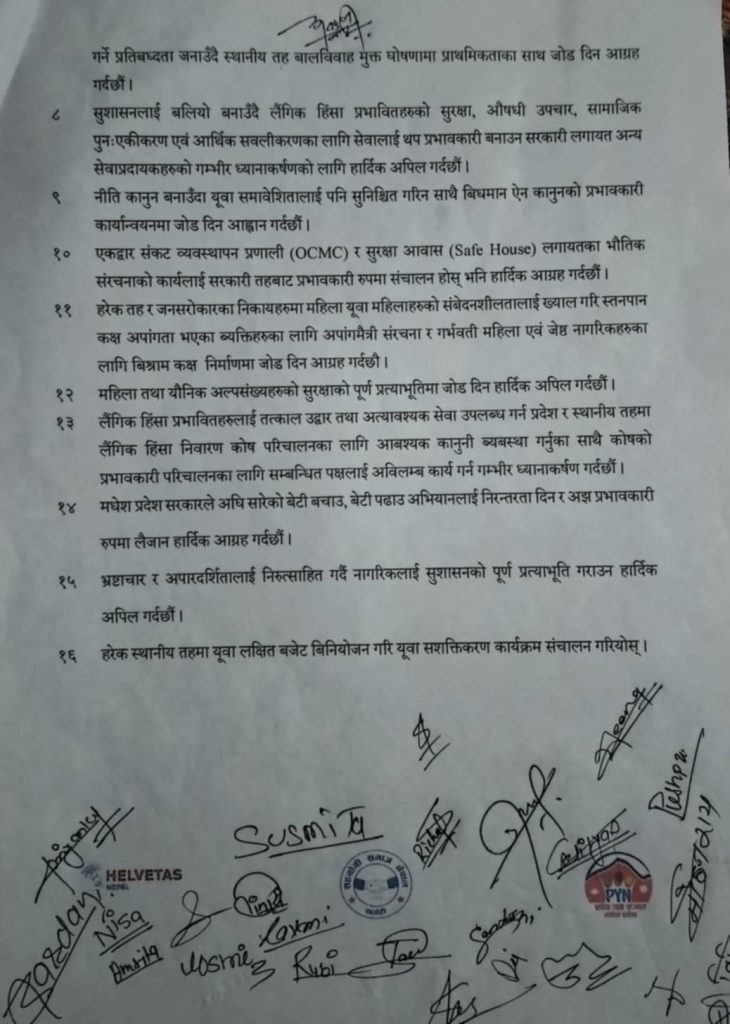 गर्ने प्रतिबध्दता जनाउँदै स्थानीय तह बालविवाह मुक्त घोषणामा प्राथमिकताका साथ जोड दिन आग्रह
गर्दछौं ।
८ सुशासनलाई बलियो बनाउँदै लैंगिक हिंसा प्रभावितहरुको सुरक्षा, औषधी उपचार, सामाजिक
पुनःएकीकरण एवं आर्थिक सवलीकरणका लागि सेवालाई थप प्रभावकारी बनाउन सरकारी लगायत अन्य
सेवाप्रदायकहरुको गम्भीर ध्यानाकर्षणको लागि हार्दिक अपिल गर्दछौं ।
९ नीति कानुन बनाउँदा यूवा समावेशितालाई पनि सुनिश्चित गरिन साथै बिधमान ऐन कानुनको प्रभावकारी
कार्यान्वयनमा जोड दिन आह्वान गर्दछौं ।
१० एकद्वार संकट व्यवस्थापन प्रणाली (OCMC) र सुरक्षा आवास (Safe House) लगायतका भौतिक
संरचनाको कार्यलाई सरकारी तहबाट प्रभावकारी रुपमा संचालन होस् भनि हार्दिक आग्रह गर्दछौं ।
११ हरेक तह र जनसरोकारका निकायहरुमा महिला यूवा महिलाहरुको संबेदनशीलतालाई ख्याल गरि स्तनपान
कक्ष अपांगता भएका ब्यक्तिहरुका लागि अपांगमैत्री संरचना र गर्भवती महिला एवं जेष्ठ नागरिकहरुका
लागि बिश्राम कक्ष निर्माणमा जोड दिन आग्रह गर्दछौ ।
१२ महिला तथा यौनिक अल्पसंख्यहरुको सुरक्षाको पूर्ण प्रत्याभूतिमा जोड दिन हार्दिक अपिल गर्दछौं ।
१३ लैंगिक हिंसा प्रभावितहरुलाई तत्काल उद्वार तथा अत्यावश्यक सेवा उपलब्ध गर्न प्रदेश र स्थानीय तहमा
लैंगिक हिंसा निवारण कोष परिचालनका लागि आबश्यक कानुनी ब्यबस्था गर्नुका साथै कोषको
प्रभावकारी परिचालनका लागि सम्बन्धित पक्षलाई अविलम्ब कार्य गर्न गम्भीर ध्यानाकर्षण गर्दछौं ।
१४ मधेश प्रदेश सरकारले अघि सारेको बेटी बचाउ, बेटी पढाउ अभियानलाई निरन्तरता दिन र अझ प्रभावकारी
रुपमा लैजान हार्दिक आग्रह गर्दछौं ।
१५ भ्रष्टाचार र अपारदर्शितालाई निरुत्साहित गर्दै नागरिकलाई सुशासनको पूर्ण प्रत्याभूति गराउन हार्दिक
अपिल गर्दछौं ।
१६ हरेक स्थानीय तहमा यूवा लक्षित बजेट बिनियोजन गरि यूवा सशक्तिकरण कार्यक्रम संचालन गरियोस् ।
SUSMITA
HELVETAS
NEPAL
PYN
Nisa
Amrita
Laxmi
Rubi